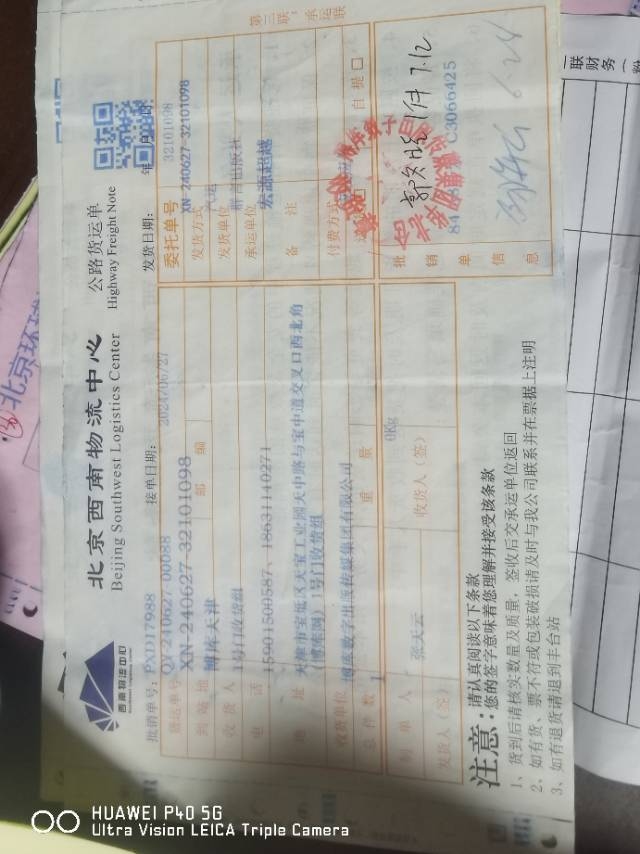 第三联：承运联
西南物流中心
北京西南物流中心
Beijing Southwest Logistics Center
公路货运单
Highway Freight Note
批销单号：PXD17988
接单日期：
2024/06/27
发货日期：
年 月 日
货运单号
QY-240627-00088
委托单号
32101098
XN-240627-32101098
邮编
XN-240627-32101098
到站地
博库天津
发货方式
汽运
收货人
1号门收货组
发货单位
电话
15901509587、18631140271
承运单位
宏源超越
地址
天津市宝坻区天宝工业园天中路与宝中道交叉口西北角
(博库网) 1号门收货组
备注
收货单位
博库数字出版传媒集团有限公司
付费方式
自提口
总件数
1
重量
0Kg
制单人
张天云
发货人（签）
收货人（签）
批销单信息
84
C3066425
7.12
6.24
注意：
请认真阅读以下条款
您的签字意味着您理解并接受该条款
1、货到后请核实数量及质量，签收后交承运单位返回
2、如有货、票不符或包装破损请及时与我公司联系并在票据上注明
3、如有退货请退到丰台站
北京环球
联 财务
HUAWEI P40 5G
Ultra Vision LEICA Triple Camera